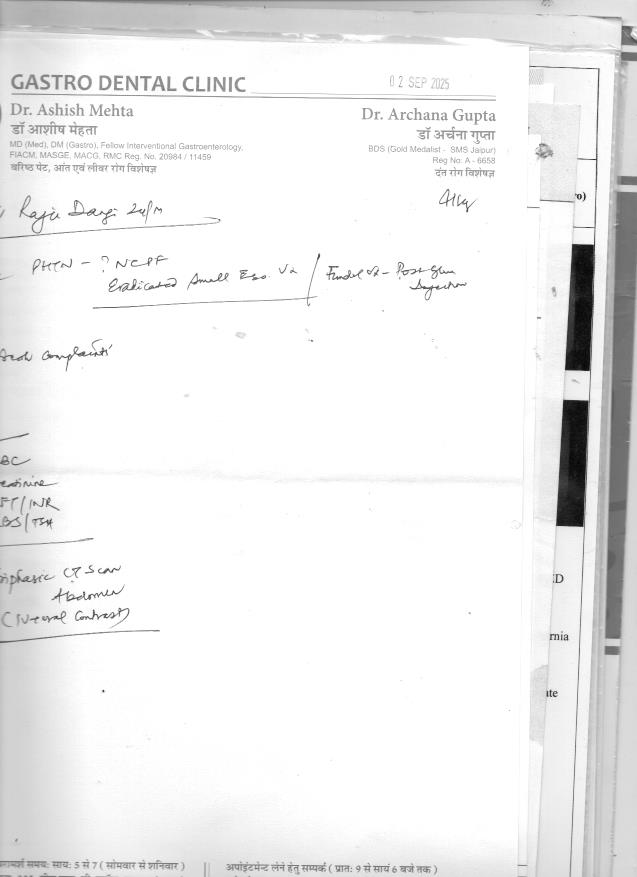 GASTRO DENTAL CLINIC
02 SEP 2025
Dr. Ashish Mehta
डॉ आशीष मेहता
MD (Med), DM (Gastro), Fellow Interventional Gastroenterology,
FIACM, MASGE, MACG, RMC Reg. No. 20984 / 11459
वरिष्ठ पेट, आंत एवं लीवर रोग विशेषज्ञ
Dr. Archana Gupta
डॉ अर्चना गुप्ता
BDS (Gold Medalist - SMS Jaipur)
Reg No: A - 6658
दंत रोग विशेषज्ञ
Raju Dangi 24/M
41kg
PHTN - ? NCPF
Eradicated Small Eso. Vx / Fundal Vx - Post Glue
Injection
complaints
BC
eatinine
FT/INR
BS/TSH
riphasic CT Scan
Abdomen
(IV+oral Contrast)
रामर्श समय: सायं: 5 से 7 ( सोमवार से शनिवार )
अपॉइंटमेन्ट लेने हेतु सम्पर्क ( प्रात: 9 से सायं 6 बजे तक )
o)
D
rnia
ate